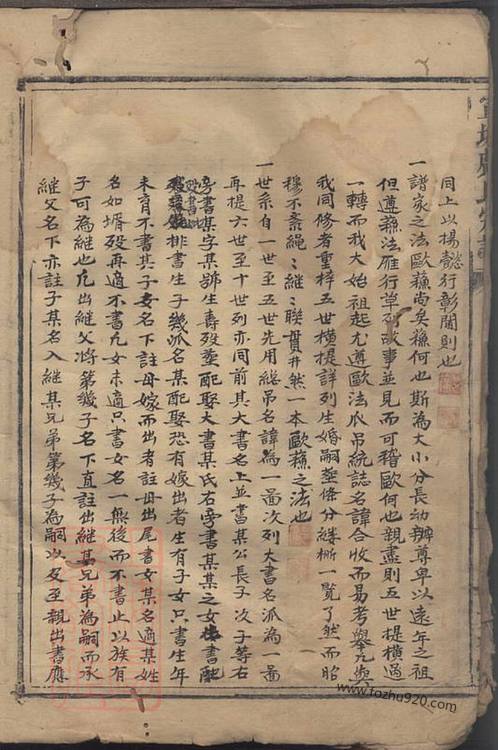 同上以揚懿行彰閫則也
一譜家之法歐蘇尚矣蘇何也斯為大小分長幼辦尊卑以遠年之祖
但遵蘇法雁行草列故事並見而可稽歐何也親盡則五世提橫過
一轉而我大始祖起尤遵歐法瓜吊統誌名諱合收而易考舉凡與
我同修者重梓五世橫提詳列生婚嗣塟條分縷晰一覽了然而昭
穆不紊繩〻継〻聯貫井然一本歐蘇之法也
一世系自一世至五世先用總吊名諱為一啚次列大書名派為一啚
再提六世至十世列亦同前其大書名上並書某公長子次子等右
旁書某字某號生壽殁塟配娶大書某氏右旁書某某之女
排書生子幾派名某配娶恐有嫁出者生有子女只書生年
未育不書其子女名下註母嫁而出者註母出尾書女某名適某姓
名如壻殁再適不書凡女未適只書女名一無後而不書止以族有
子可為継也凢出継父將第幾子名下直註出継某兄弟為嗣而承
継父名下亦註子某名入継某兄弟第幾子為嗣以及至親出書應
宗譜
www.fozhu920.com